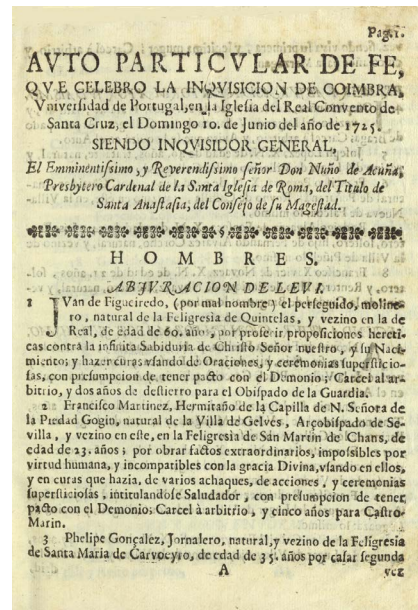 Pag. 1.
AVTO PARTICVLAR DE FE,
QVE CELEBRO LA INQVISICION DE COIMBRA,
Vniversidad de Portugal, en la Iglesia del Real Convento de
Santa Cruz, el Domingo 10. de Junio del año de 1725.
SIENDO INQVISIDOR GENERAL,
El Eminentissimo, y Reverendissimo señor Don Nuño de Acuña,
Presbytero Cardenal de la Santa Iglesia de Roma, del Titulo de
Santa Anastasia, del Consejo de su Magestad.
HOMBRES.
ABJVRACION DE LEVI.
1 JVan de Figueiredo, (por mal nombre) el perseguido, moline-
ro, natural de la Feligresia de Quintelas, y vezino en la de
Real, de edad de 60. años, por proferir proposiciones hereti-
cas contra la infinita Sabiduria de Christo Señor nuestro, y su Naci-
miento; y hazer curas vsando de Oraciones, y ceremonias supersticio-
sas, con presumpcion de tener pacto con el Demonio; Carcel al ar-
bitrio, y dos años de destierro para el Obispado de la Guardia.
2 Francisco Martinez, Hermitaño de la Capilla de N. Señora de
la Piedad Gogin, natural de la Villa de Gelves, Arçobispado de Se-
villa, y vezino en este, en la Feligresia de San Martin de Chans, de
edad de 23. años; por obrar factos extraordinarios, impossibles por
virtud humana, y incompatibles con la gracia Divina, vsando en ellos,
y en curas que hazia, de varios achaques, de acciones, y ceremonias
supersticiosas, intitulandose Saludador, con presumpcion de tener
pacto con el Demonio; Carcel à arbitrio, y cinco años para Castro-
Marin.
3 Phelipe Gonçalez, Jornalero, natural, y vezino de la Feligresia
de Santa Maria de Carvoeyro, de edad de 35. años por casar segunda
A vez